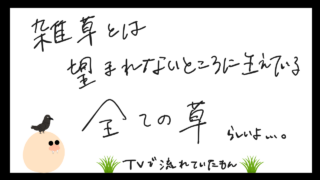 雑草とは
望まれないところに生えている
全ての草
らしいよ…。
TVで流れていたもん